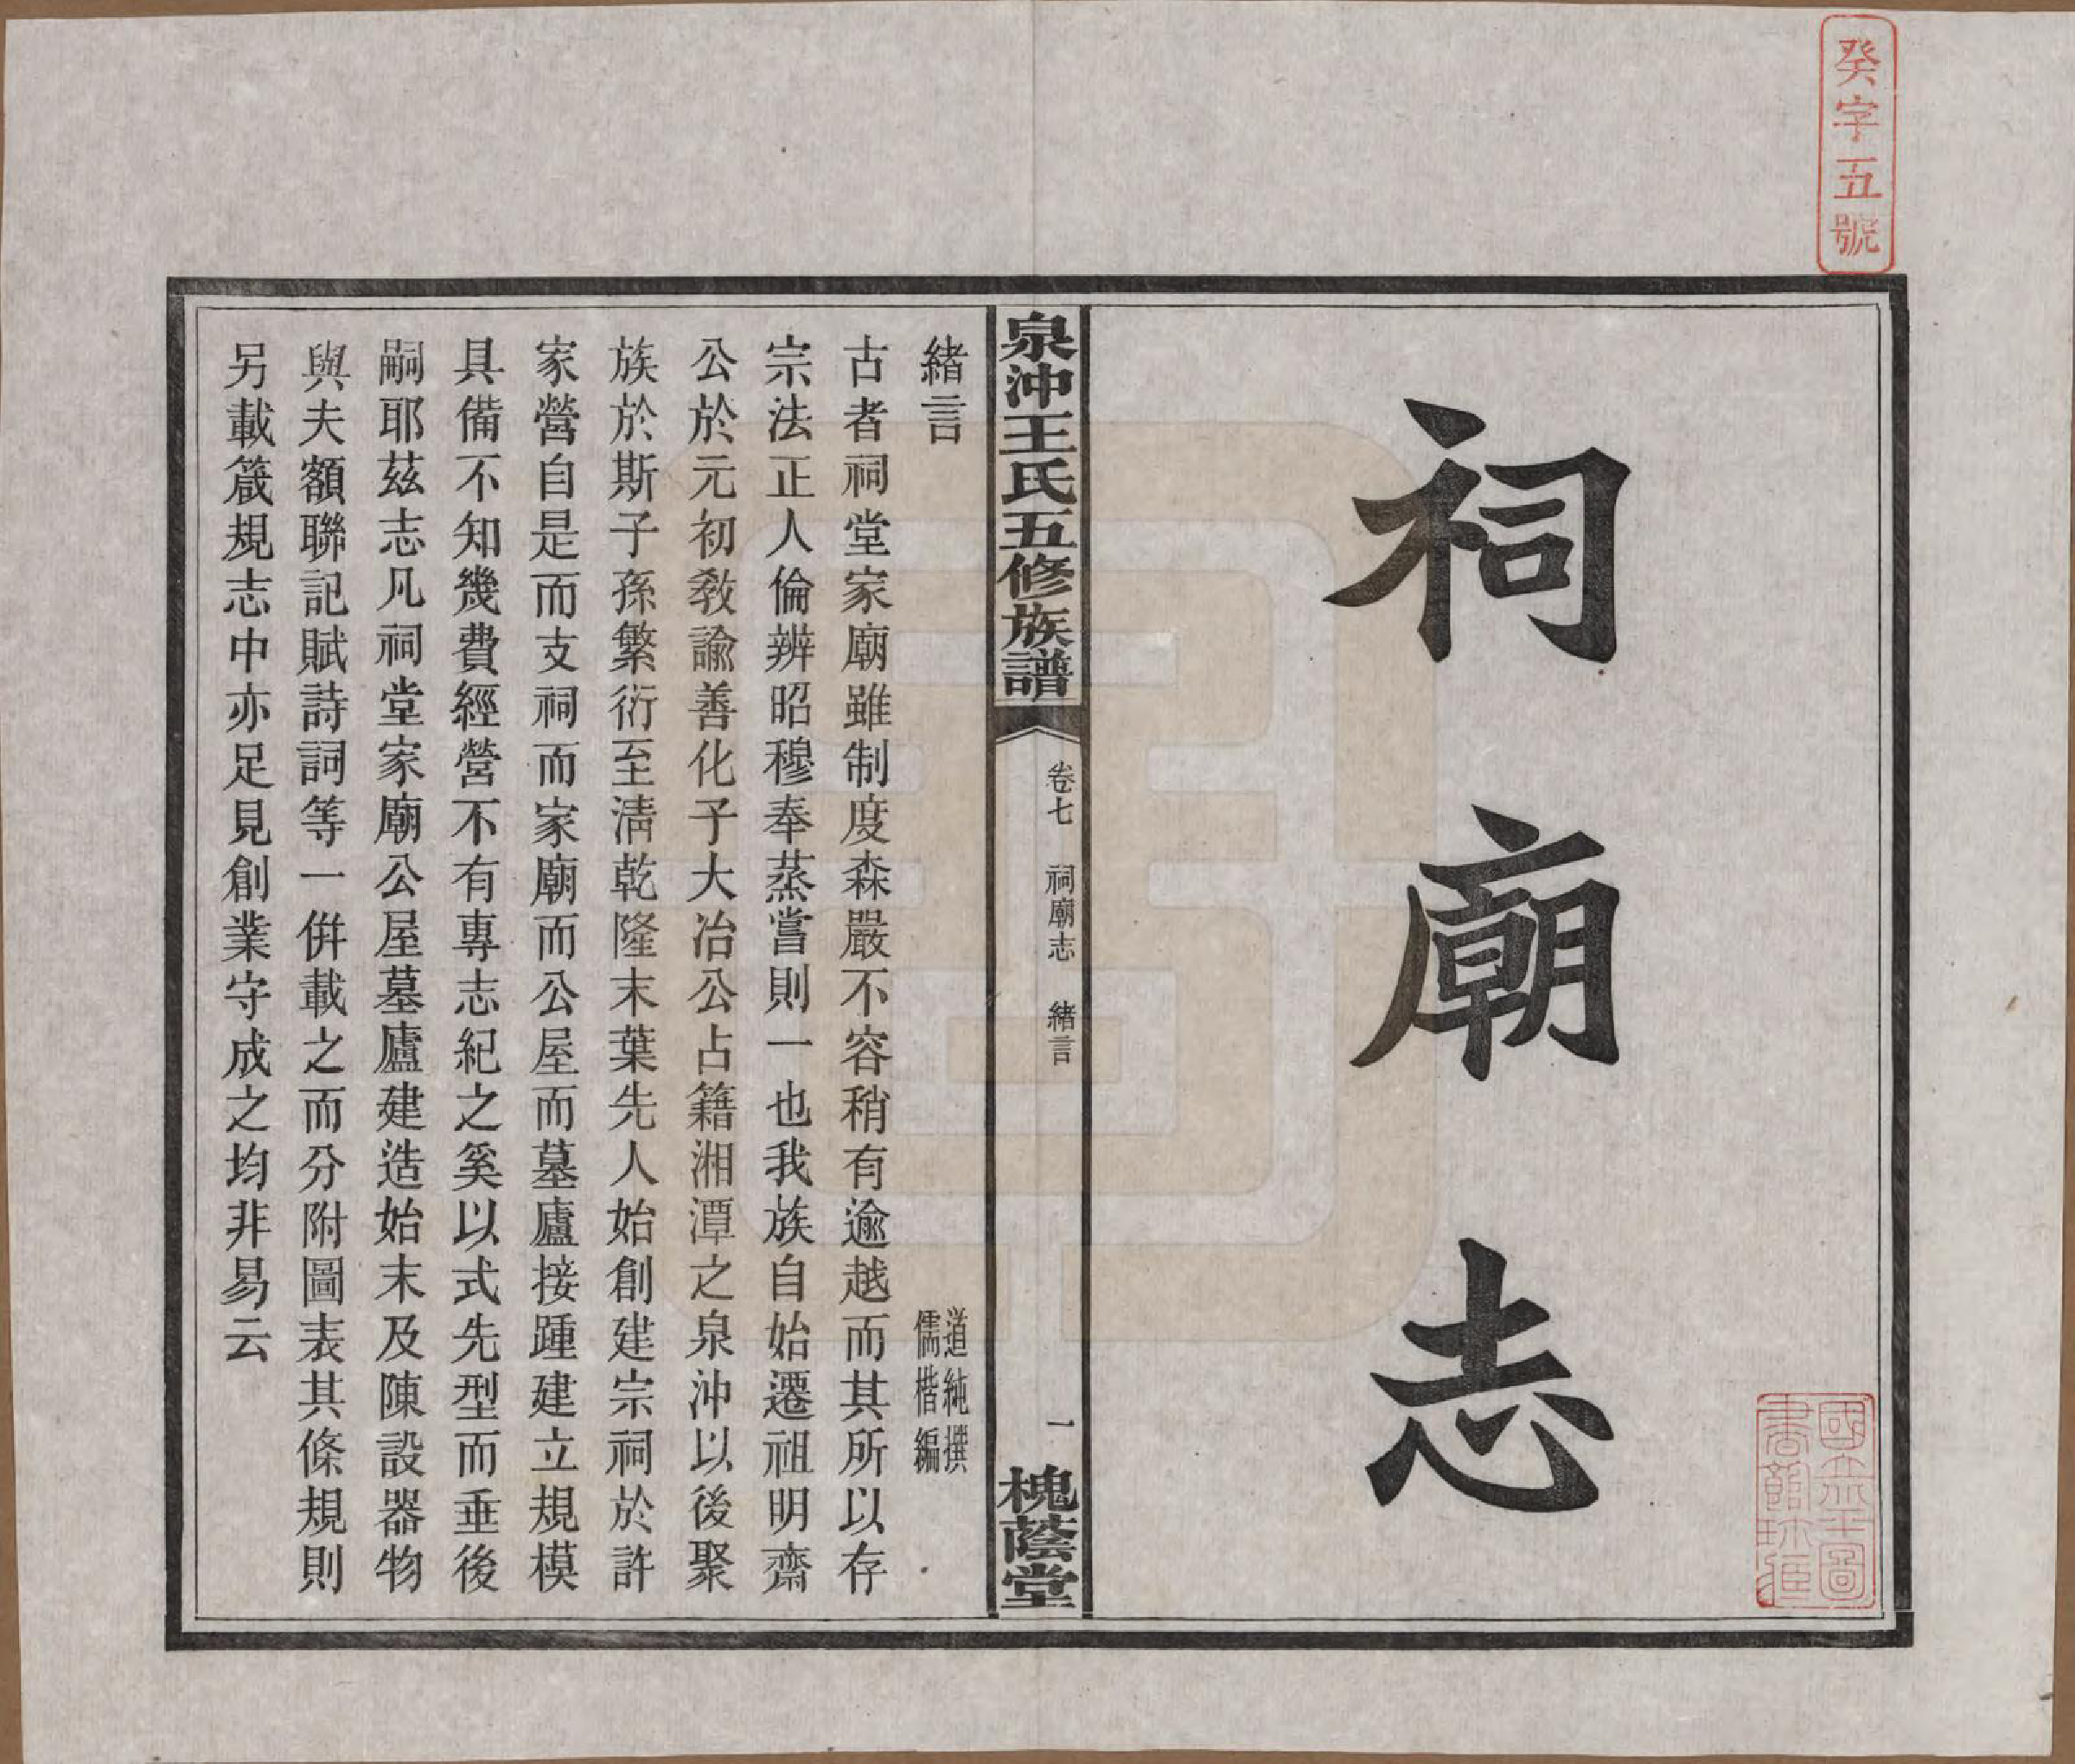 癸字五號
祠廟志
國立北平圖
書館珍藏
泉沖王氏五修族譜
卷七 祠廟志 緒言
一
槐蔭堂
緒言
道純撰
儒楷編
古者祠堂家廟雖制度森嚴不容稍有逾越而其所以存
宗法正人倫辨昭穆奉蒸嘗則一也我族自始遷祖明齋
公於元初教諭善化子大冶公占籍湘潭之泉沖以後聚
族於斯子孫繁衍至清乾隆末葉先人始創建宗祠於許
家營自是而支祠而家廟而公屋而墓廬接踵建立規模
具備不知幾費經營不有專志紀之奚以式先型而垂後
嗣耶茲志凡祠堂家廟公屋墓廬建造始末及陳設器物
與夫額聯記賦詩詞等一併載之而分附圖表其條規則
另載箴規志中亦足見創業守成之均非易云